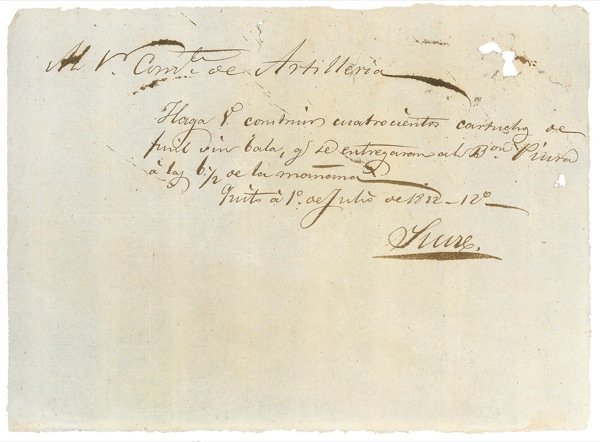 Al Sr. Comte. de Artilleria
Haga V. construir cuatrocientos cartuchos de
fusil sin bala, qe. se entregaran al Bon. Piura
à las 6 1/2 de la mañana
Quito à 1o. de Julio de 1822_12o
Sucre.